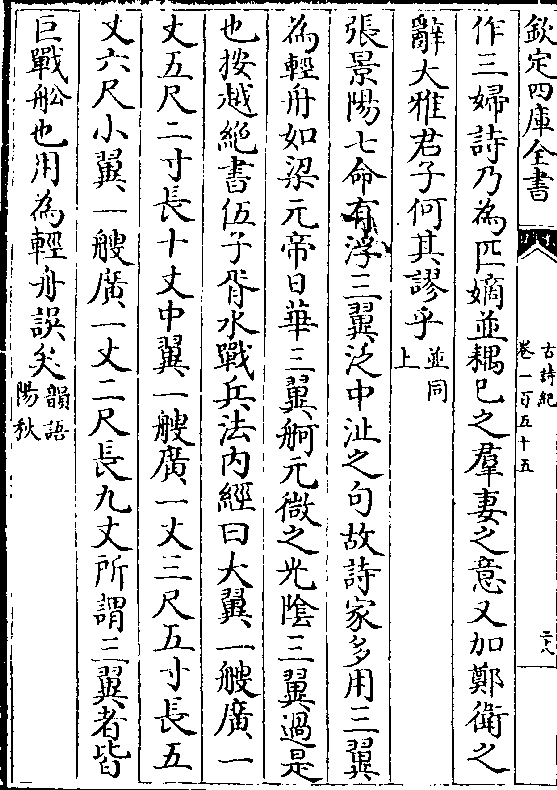 欽定四庫全書
古詩紀
卷一百五十五
二十八
作三婦詩乃為匹嫡並耦巳之羣妻之意又加鄭衛之
辭大雅君子何其謬乎並同上
張景陽七命有浮三翼泛中沚之句故詩家多用三翼
為輕舟如梁元帝日華三翼舸元微之光陰三翼過是
也按越絶書伍子胥水戰兵法内經曰大翼一艘廣一
丈五尺二寸長十丈中翼一艘廣一丈三尺五寸長五
丈六尺小翼一艘廣一丈二尺長九丈所謂三翼者皆
巨戰船也用為輕舟誤矣韻語陽秋